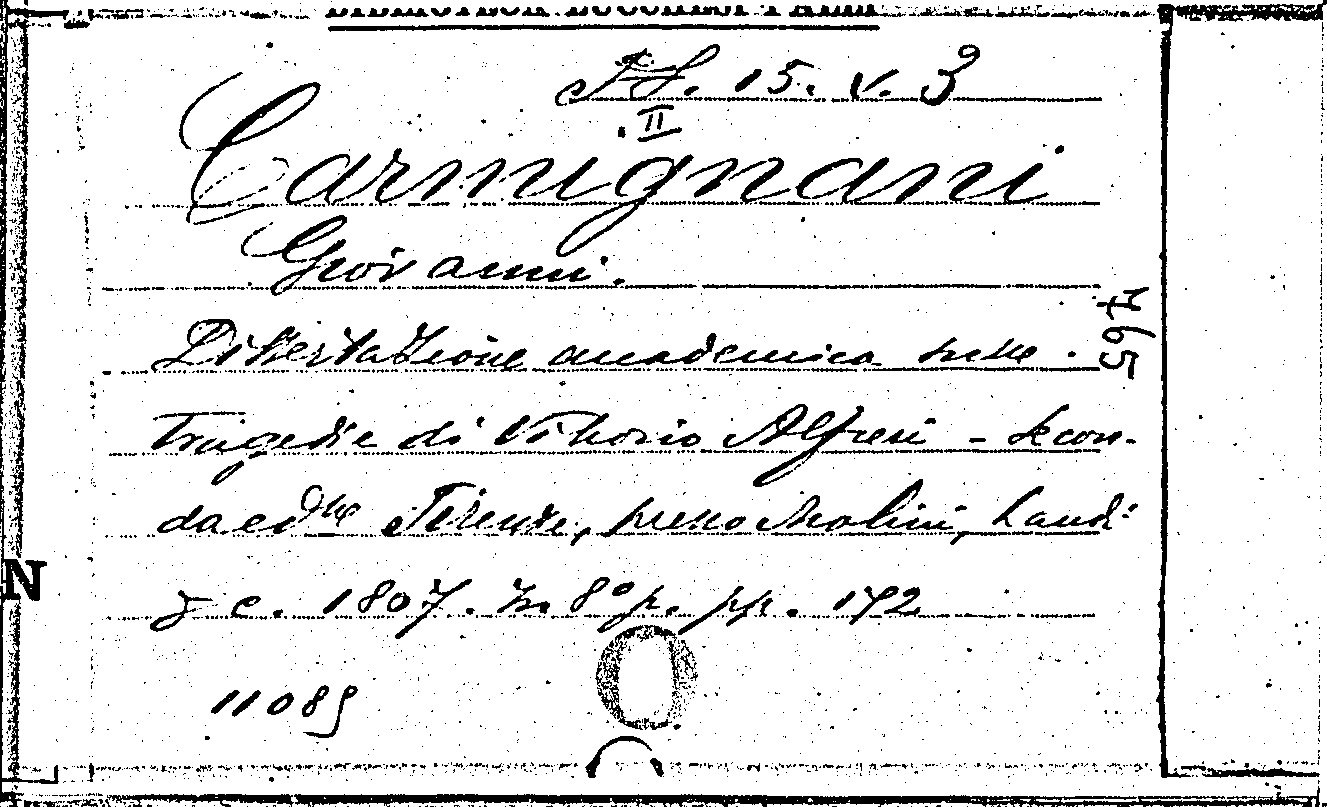 BIBLIOTECA LUCCHESI PALLI
15. V. 3
II
Carmignani
Giovanni.
Dissertazione accademica sulle
Tragedie di Vittorio Alfieri - Secon-
da ediz.ne Firenze, presso Molini, Landi
e c. 1807. In 8° p. pp. 172
11089
N